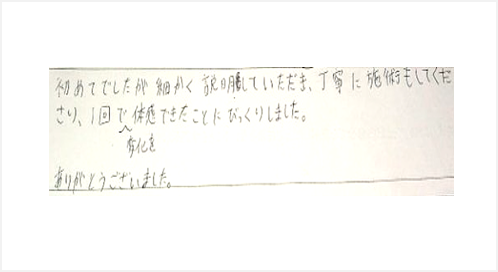 初めてでしたが細かく説明していただき、丁寧に施術もしてくだ
さり、1回で変化を体感できたことにびっくりしました。
ありがとうございました。